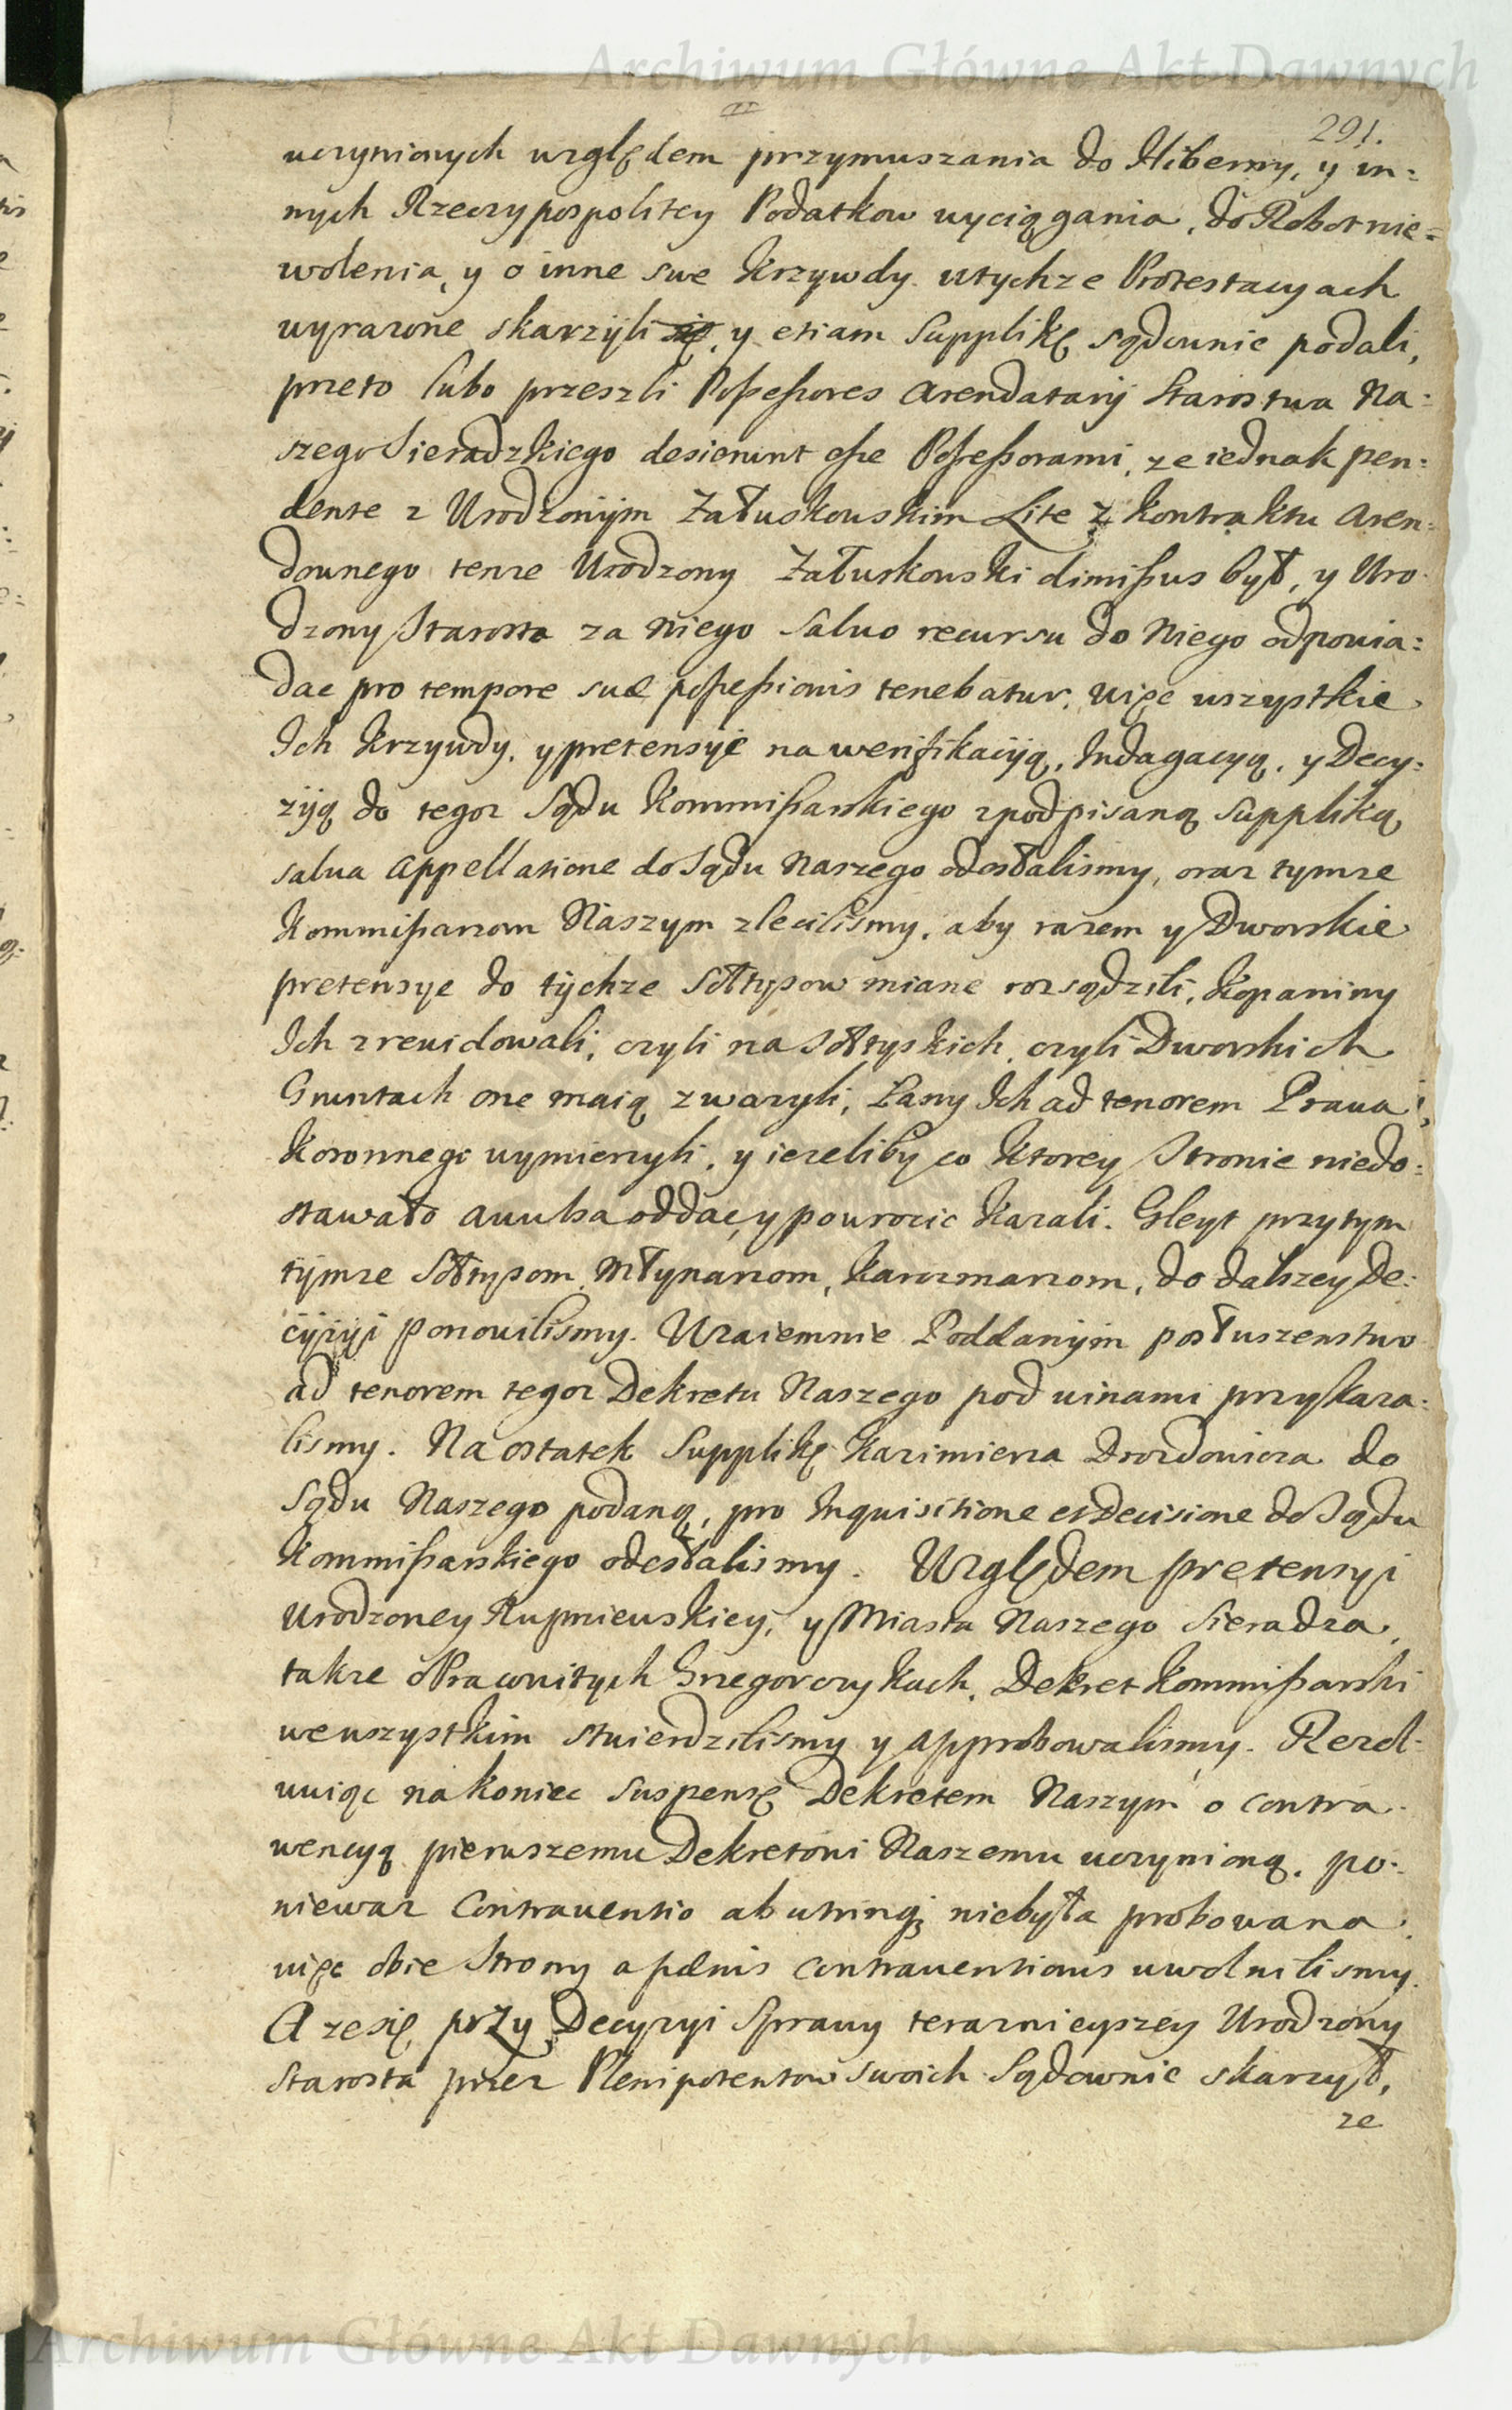 Archiwum Główne Akt Dawnych
291.
uczynionych względem przymuszania do Hiberny, y in=
nych Rzeczypospolitey Podatkow wyciągania, do Robot nie=
wolenia, y o inne swe krzywdy wtychze Protestacyach
wyrazone skarzyli się, y etiam Supplikę sądownie podali,
przeto lubo przeszli Possessores Arendatarij Starostwa Na=
szego Sieradzkiego desierunt esse Possessorami, ze iednak pen=
dente z Urodzonym Załuskowskim Lite z kontraktu Aren=
downego tenze Urodzony Załuskowski dimissus był, y Uro=
dzony Starosta za Niego salvo recursu do Niego odpowia=
dac pro tempore suæ possessionis tenebatur, więc wszystkie
Ich krzywdy, y pretensye na weryfikacyą, Indagacyą, y Decy=
zyą do tegoz Sądu Kommissarskiego z podpisaną Suppliką
salva Appellatione do Sądu Naszego odosłalismy, oraz tymze
Kommissarzom Naszym zlecilismy, aby razem y Dworskie
pretensye do tychze Sołtysow miane rozsądzili, Kopaniny
Ich zrewidowali, czyli na Sołtyskich, czyli Dworskich
Gruntach one maią zwazyli, Łany Ich ad tenorem Prawa
Koronnego wymierzyli, y iezeliby co ktorey Stronie niedo=
stawało avulsa oddac, y powrocic kazali. Gleyt przytym
tymze Sołtysom, Młynarzom, Karczmarzom, do dalszey De=
cyzyi ponowilismy. Wzaiemnie Poddanym posłuszenstwo
ad tenorem tegoz Dekretu Naszego pod winami przykaza=
lismy. Na ostatek Supplikę Kazimierza Drozdowicza do
Sądu Naszego podaną, pro Inquisitione et Decisione do Sądu
Kommissarskiego odesłalismy. Względem pretensyi
Urodzoney Rupniewskiey, y Miasta Naszego Sieradza,
takze o Pracowitych Grzegorczykach, Dekret Kommissarski
we wszystkim stwierdzilismy y approbowalismy. Rezol=
wuiąc na koniec suspensę Dekretem Naszym o contra=
wencyą pierwszemu Dekretowi Naszemu uczynioną, po=
niewaz Contraventio ab utrinq; niebyła probowana
więc obie Strony a pœnis contraventionis uwolnilismy.
A ze się przy Decyzyi Sprawy teraznieyszey Urodzony
Starosta przez Plenipotentow swoich Sądownie skarzył,
ze
Archiwum Główne Akt Dawnych